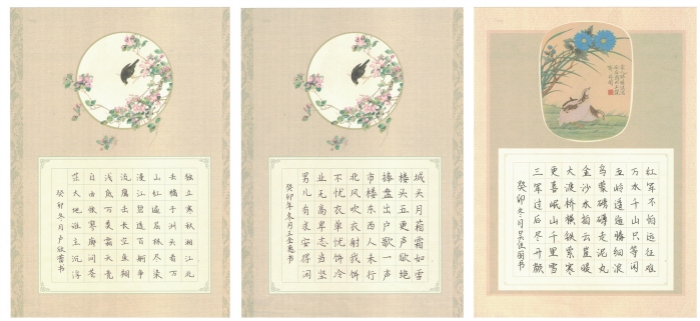 独立寒秋湘江北
去橘子洲头看万
山红遍层林尽染
漫江碧透百舸争
流鹰击长空鱼翔
浅底万类霜天竞
自由怅寥廓问苍
茫大地谁主沉浮
癸卯冬月卢欣蕾书
城头月落霜如雪
楼头五更声欲绝
捧盘出户歌一声
市楼东西人未行
北风吹衣射我饼
不忧衣单忧饼冷
业无高卑志当坚
男儿有求安得闲
癸卯年冬月王金惠书
红军不怕远征难
万水千山只等闲
五岭逶迤腾细浪
乌蒙磅礴走泥丸
金沙水拍云崖暖
大渡桥横铁索寒
更喜岷山千里雪
三军过后尽开颜
癸卯冬月吴佳图书